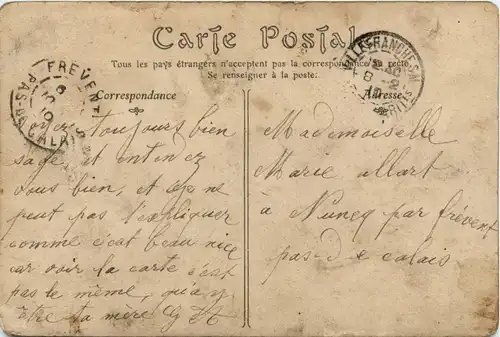 Carte Postale
Tous les pays étrangers n'acceptent pas la correspondance au recto.
Se renseigner à la poste.
Correspondance
Adresse
FREVENT
PAS-DE-CALAIS
toujours bien
sage et
vous bien, et je ne
peut pas t'expliquer
comme c'est beau nice
car voir la carte c'est
pas le même, qu'a y
être ta mere
Mademoiselle
Marie allart
à Nuncq par frévent
pas-d-e calais